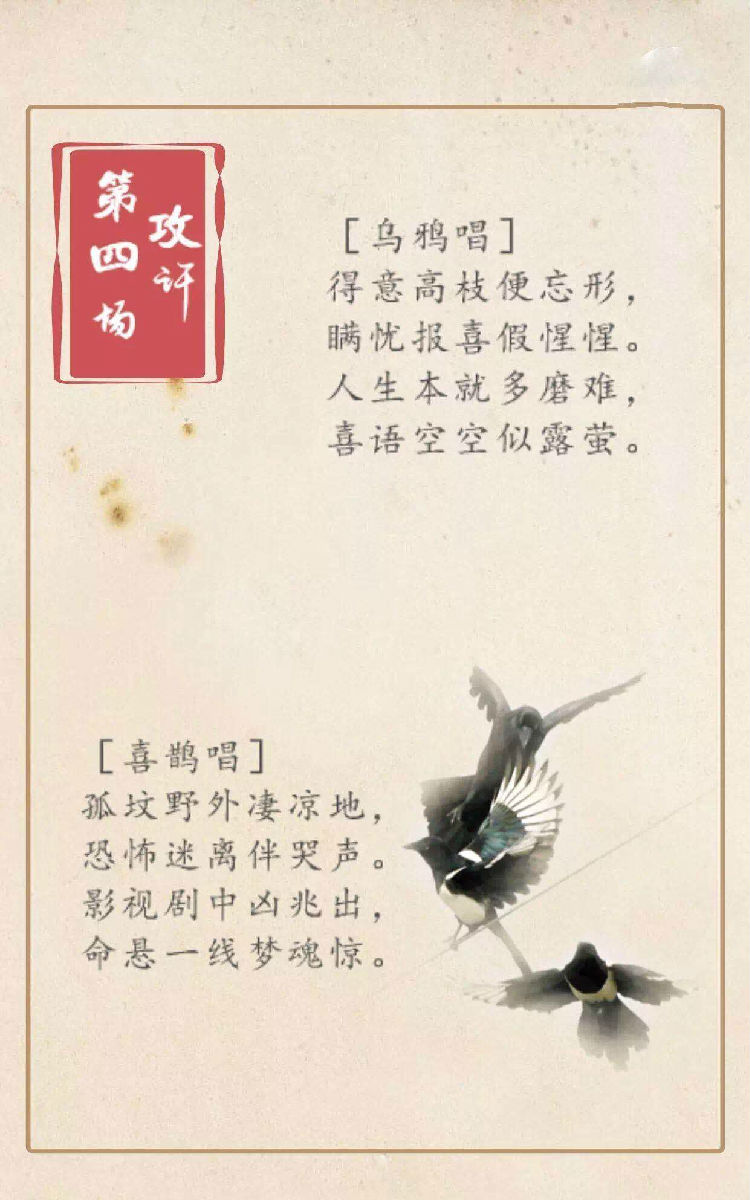 第四场
攻讦
[乌鸦唱]
得意高枝便忘形，
瞒忧报喜假惺惺。
人生本就多磨难，
喜语空空似露萤。
[喜鹊唱]
孤坟野外凄凉地，
恐怖迷离伴哭声。
影视剧中凶兆出，
命悬一线梦魂惊。